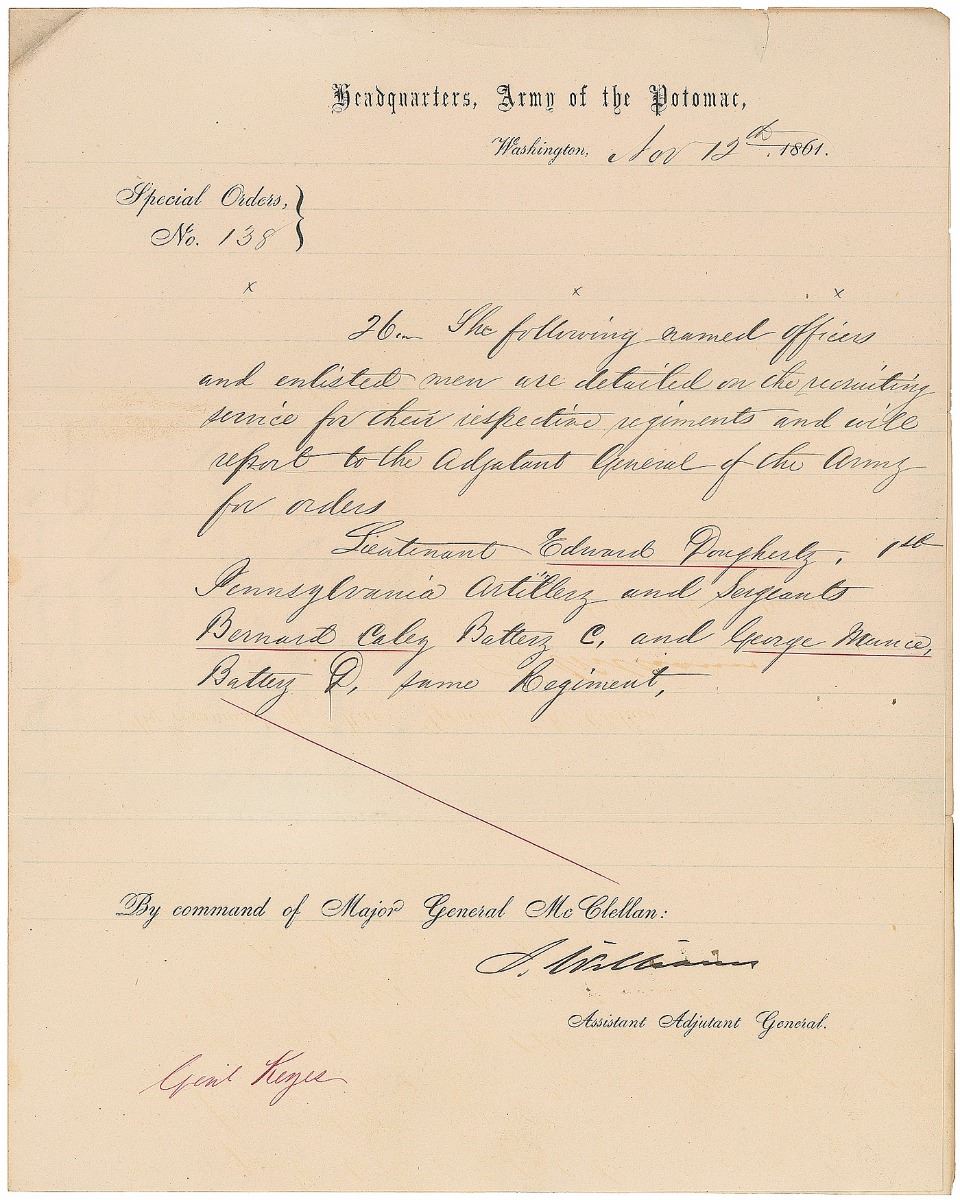 Headquarters, Army of the Potomac,
Washington, Nov 12th. 1861.
Special Orders,
No. 138
x x x
26. The following named officers
and enlisted men are detailed on the recruiting
service for their respective regiments and will
report to the Adjutant General of the Army
for orders
Lieutenant Edward Dougherty, 1st
Pennsylvania Artillery and Sergeants
Bernard Caley Battery C, and George Munce,
Battery D, same Regiment.
By command of Major General McClellan:
S. Williams
Assistant Adjutant General.
Genl Keyes